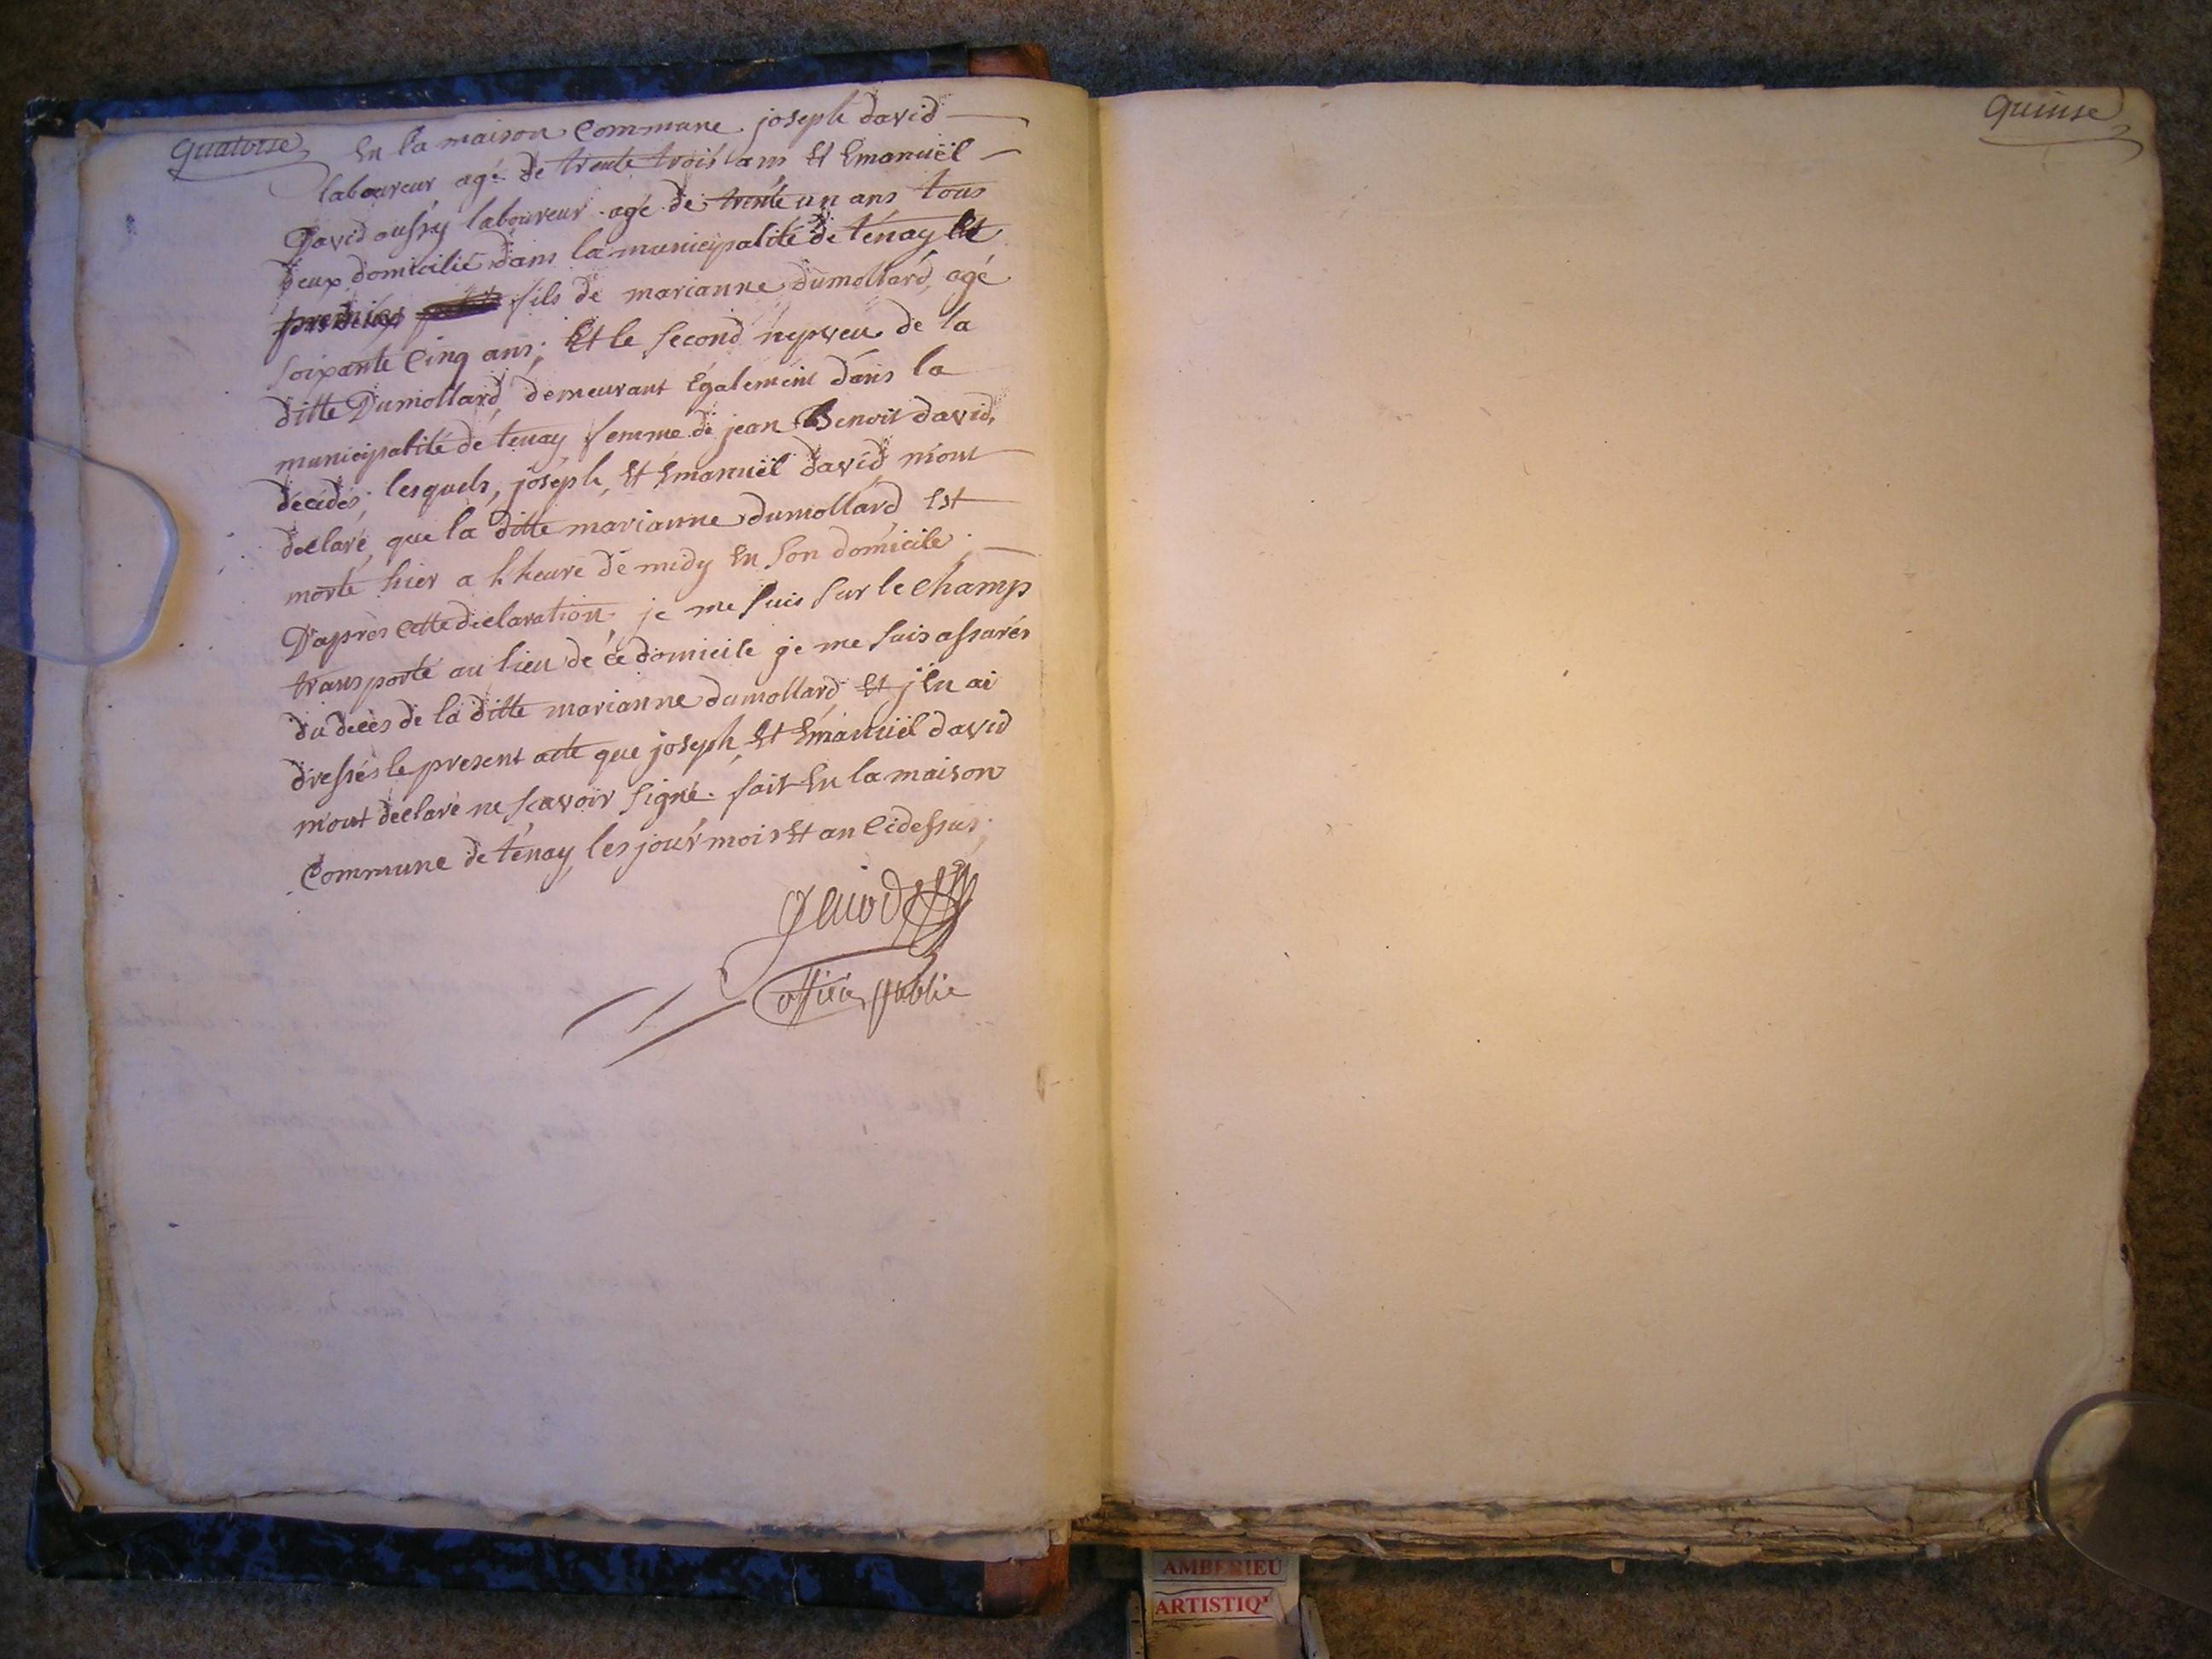 quatorse
En la maison Commune joseph david
laboureur agé de trente trois ans Et Emanuël
David aussy laboureur agé de trente un ans tous
deux domicilié dans la municipalité de ténay le
premier fils de marianne dumollard, agé
soixante Cinq ans; Et le second nepveu de la
ditte Dumollard demeurant Également dans la
municipalité de tenay femme de jean Benoit david,
décédés; lesquels, joseph, Et Emanuël david m'ont
declaré, que la ditte marianne dumollard Est
morte hier a l'heure de midy En son domicile;
D'après cette declaration je me suis sur le champ
transporté au lieu de ce domicile je me suis assurés
du decès de la ditte marianne dumollard Et j'En ai
dressés le present acte que joseph, Et Emanuël david
m'ont declaré ne sçavoir signé. fait En la maison
Commune de ténay, les jour mois Et an Cidessus;
officier public
quinse
AMBERIEU
ARTISTIQ